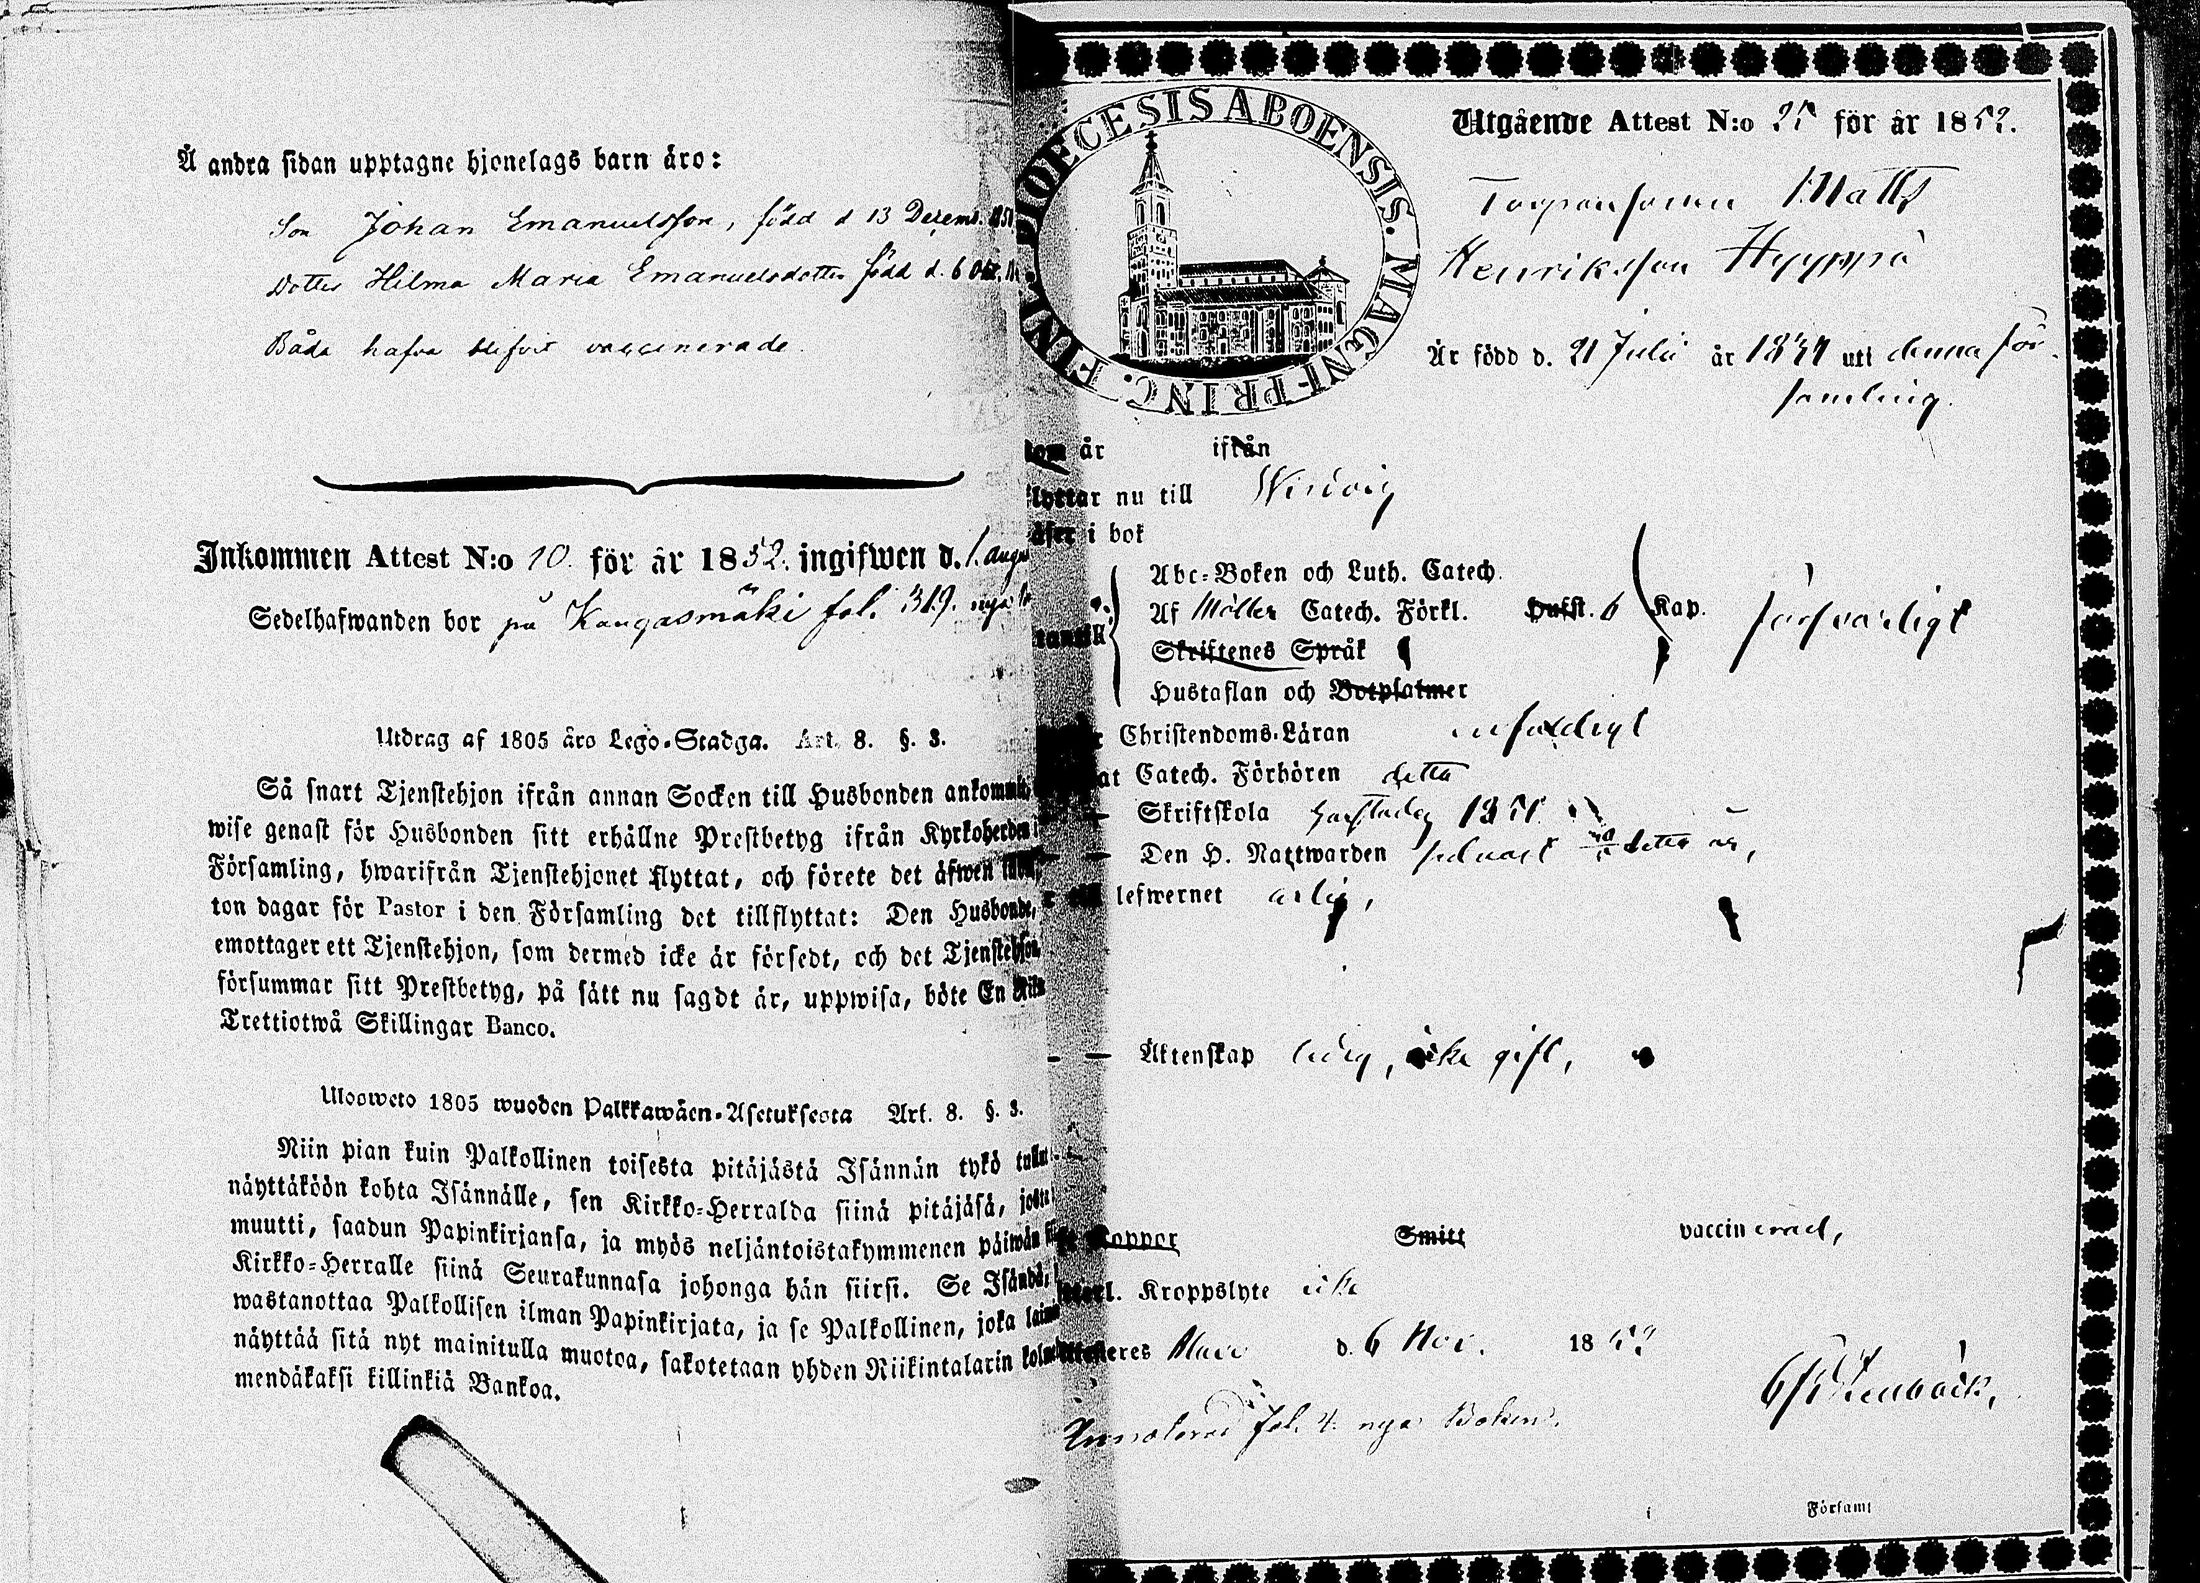 Å andra sidan upptagne hjonelags barn äro:
Son Johan Emanuelsson, född d 13 Decemb.
Dotter Hilma Maria Emanuelsdotter född d. 6
Båda hafva blifvit vaccinerade.
Inkommen Attest N:o 10. för år 1852. ingifwen d. 1. augu
Sedelhafwanden bor på Kangasmäki fol. 319. nya
Utdrag af 1805 års Lego-Stadga. Art. 8. §. 3.
Så snart Tjenstehjon ifrån annan Socken till Husbonden ankommit,
wise genast för Husbonden sitt erhållne Prestbetyg ifrån Kyrkoherden i
Församling, hwarifrån Tjenstehjonet flyttat, och förete det äfwen
ton dagar för Pastor i den Församling det tillflyttat: Den Husbonde,
emottager ett Tjenstehjon, som dermed icke är försedt, och det Tjenstehjon,
försummar sitt Prestbetyg, på sätt nu sagdt är, uppwisa, böte En Riks
Trettiotwå Skillingar Banco.
Ulosweto 1805 wuoden Palkkawäen-Asetuksesta Art. 8. §. 3.
Niin pian kuin Palkollinen toisesta pitäjästä Isännän tykö tullut
näyttäköön kohta Isännälle, sen Kirkko-Herralda siinä pitäjäsä, josta
muutti, saadun Papinkirjansa, ja myös neljäntoistakymmenen päiwän
Kirkko-Herralle siinä Seurakunnasa johonga hän siirsi. Se Isändä,
wastanottaa Palkollisen ilman Papinkirjata, ja se Palkollinen, joka
näyttää sitä nyt mainitulla muotoa, sakotetaan yhden Riikintalarin kolm
mendäkaksi killinkiä Bankoa.
DIOECESIS ABOENSIS. MAGNI PRINC. FINL.
Utgående Attest N:o 25 för år 1852.
Torparesonen Matts
Henriksson Hyyppä
Är född d. 21 Julii år 1834 uti denna för-
samling.
kom år ifrån
flyttar nu till
läser i bok
Abc-Boken och Luth. Catech.
Af Möller Catech. Förkl. Hufst. 6 Kap. försvarligt
Skriftenes Språk
Hustaflan och Botpsalmer
Christendoms-Läran enfaldigt
at Catech. Förhören detta
— Skriftskola 1851
— — Den H. Nattwarden sednast detta år,
lefwernet ärlig,
— — Äktenskap ledig, icke gift,
Koppor Smitt vaccinerad,
Kroppslyte icke
Attesteres d. 6 Nov. 1852
fol. 4. nya Boken.
Församl